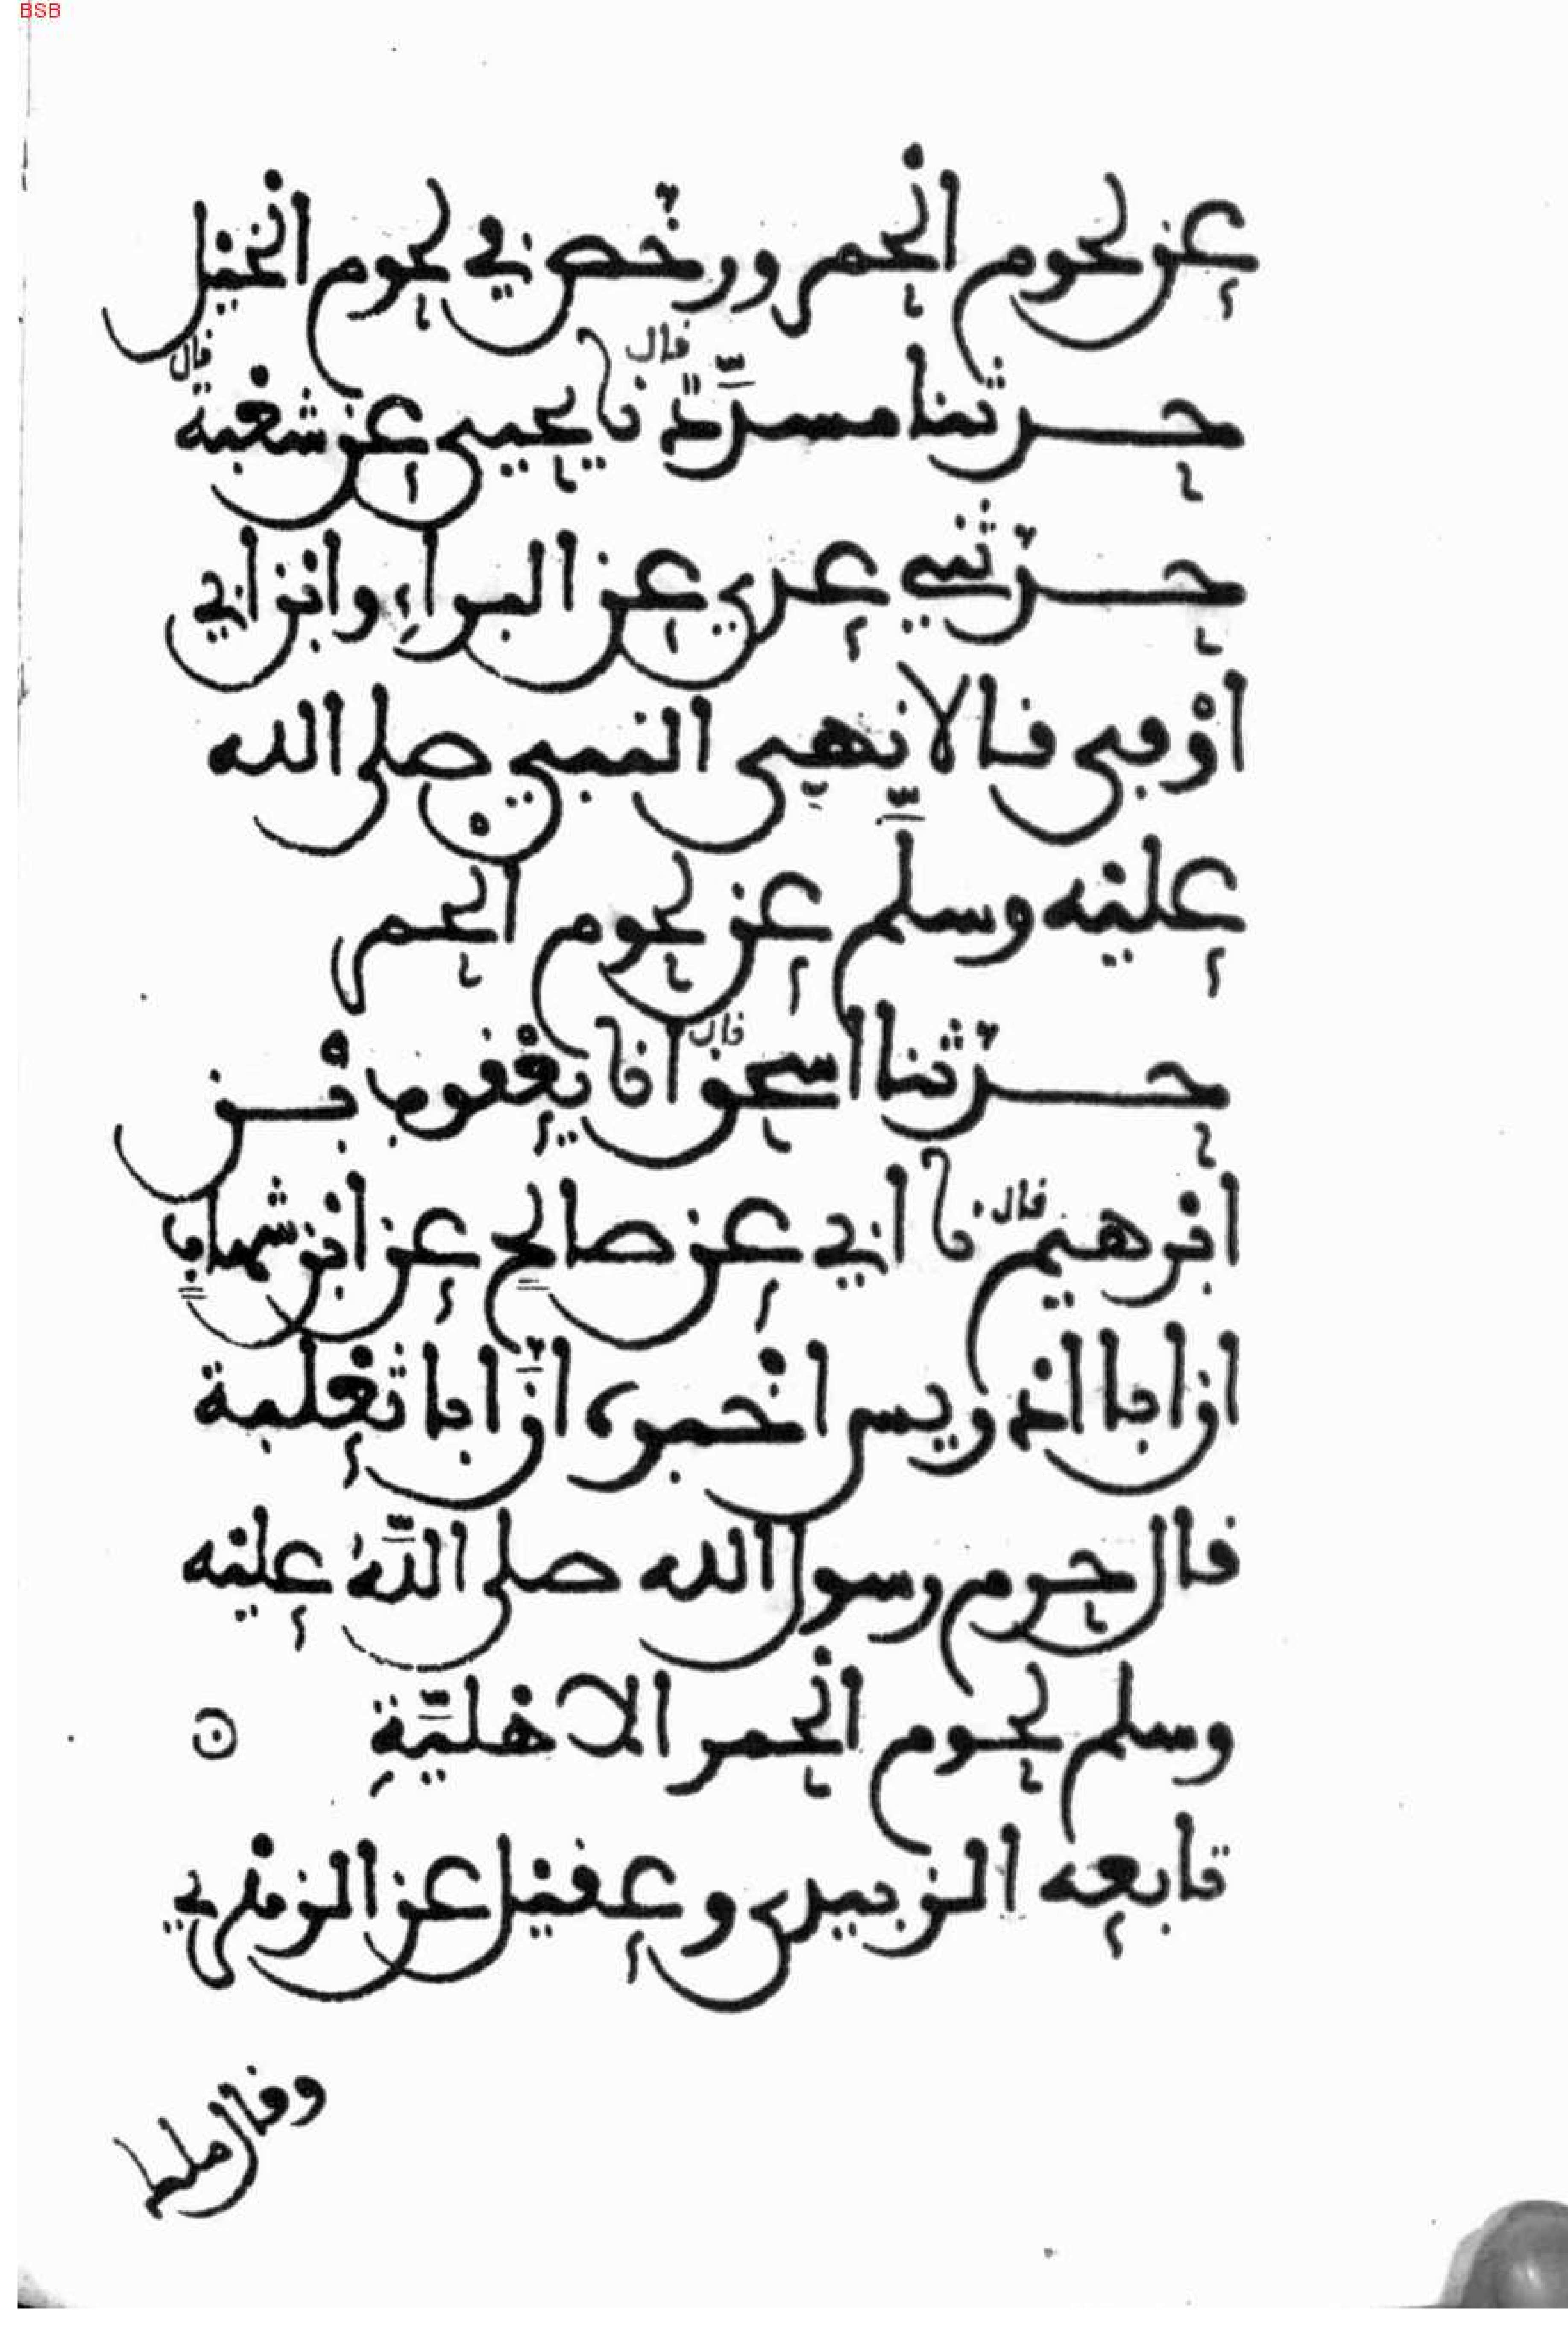 BSB
عن لحوم الحمر ورخص في لحوم الخيل
حدثنا مسدد قال نا يحيى عن شعبة قال
حدثني عدي عن البراء وابن ابي
اوفى قالا نهى النبي صلى الله
عليه وسلم عن لحوم الحمر
حدثنا اسحق قال انا يعقوب بن
ابرهيم قال نا ابي عن صالح عن ابن شهاب
ان ابا ادريس اخبره ان ابا ثعلبة
قال حرم رسول الله صلى الله عليه
وسلم لحوم الحمر الاهلية
تابعه الزبيدي وعقيل عن الزهري
وقال ملك